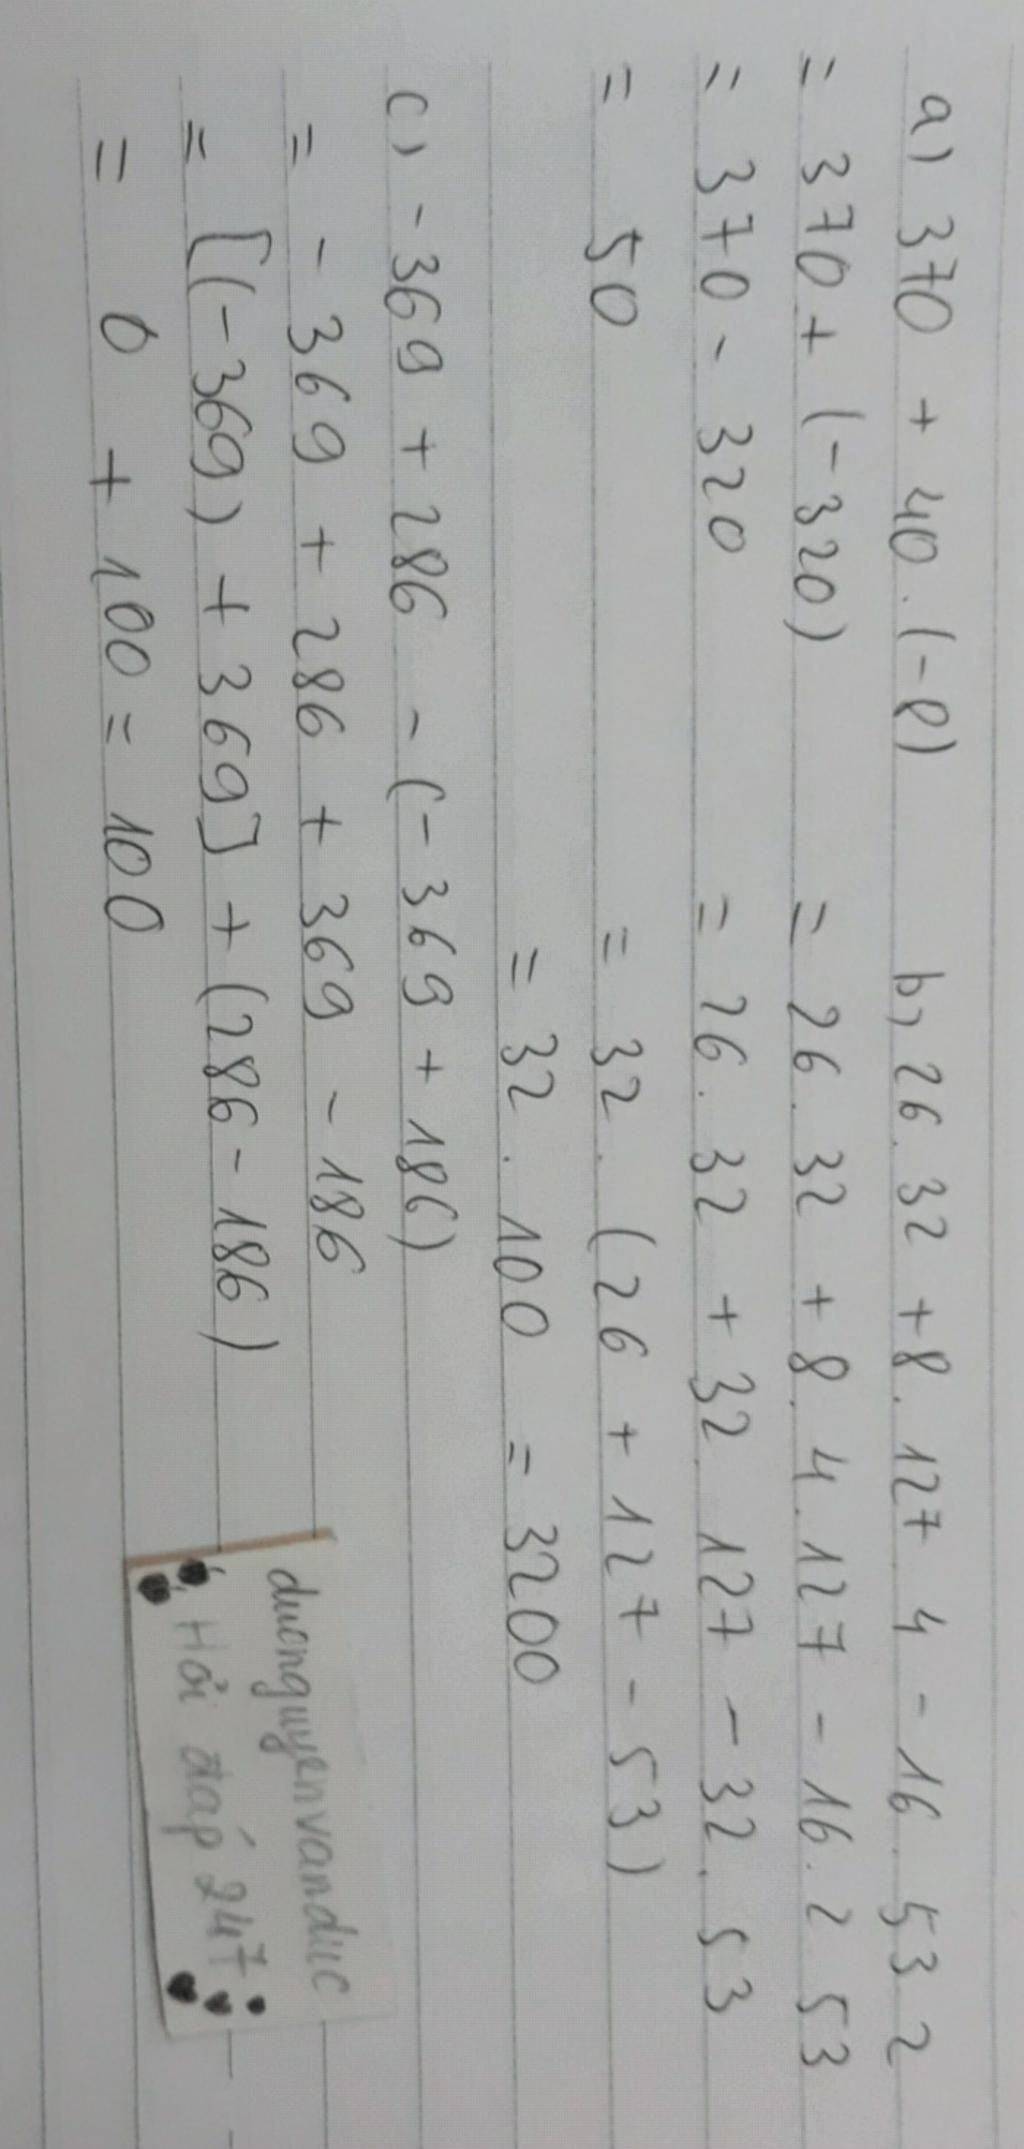 a) 370 + 40. (-8)
= 370 + (-320)
= 370 - 320
= 50
b, 26. 32 + 8. 127 4 - 16. 53 2
= 26. 32 + 8. 4. 127 - 16. 2 53
= 26. 32 + 32. 127 - 32. 53
= 32. (26 + 127 - 53)
= 32. 100 = 3200
c) -369 + 286 - (-369 + 186)
= -369 + 286 + 369 - 186
= [(-369) + 369] + (286 - 186)
= 0 + 100 = 100
duonguyenvanduc
Hỏi đáp 247